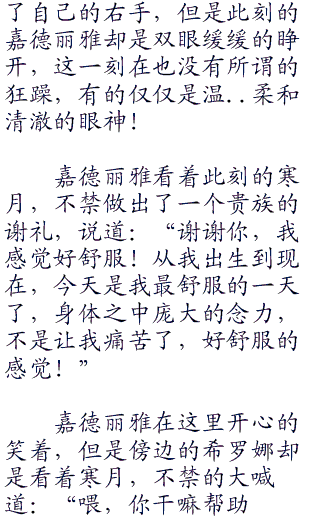 了自己的右手，但是此刻的
嘉德丽雅却是双眼缓缓的睁
开，这一刻在也没有所谓的
狂躁，有的仅仅是温..柔和
清澈的眼神！
嘉德丽雅看着此刻的寒
月，不禁做出了一个贵族的
谢礼，说道：“谢谢你，我
感觉好舒服！从我出生到现
在，今天是我最舒服的一天
了，身体之中庞大的念力，
不是让我痛苦了，好舒服的
感觉！”
嘉德丽雅在这里开心的
笑着，但是傍边的希罗娜却
是看着寒月，不禁的大喊
道：“喂，你干嘛帮助